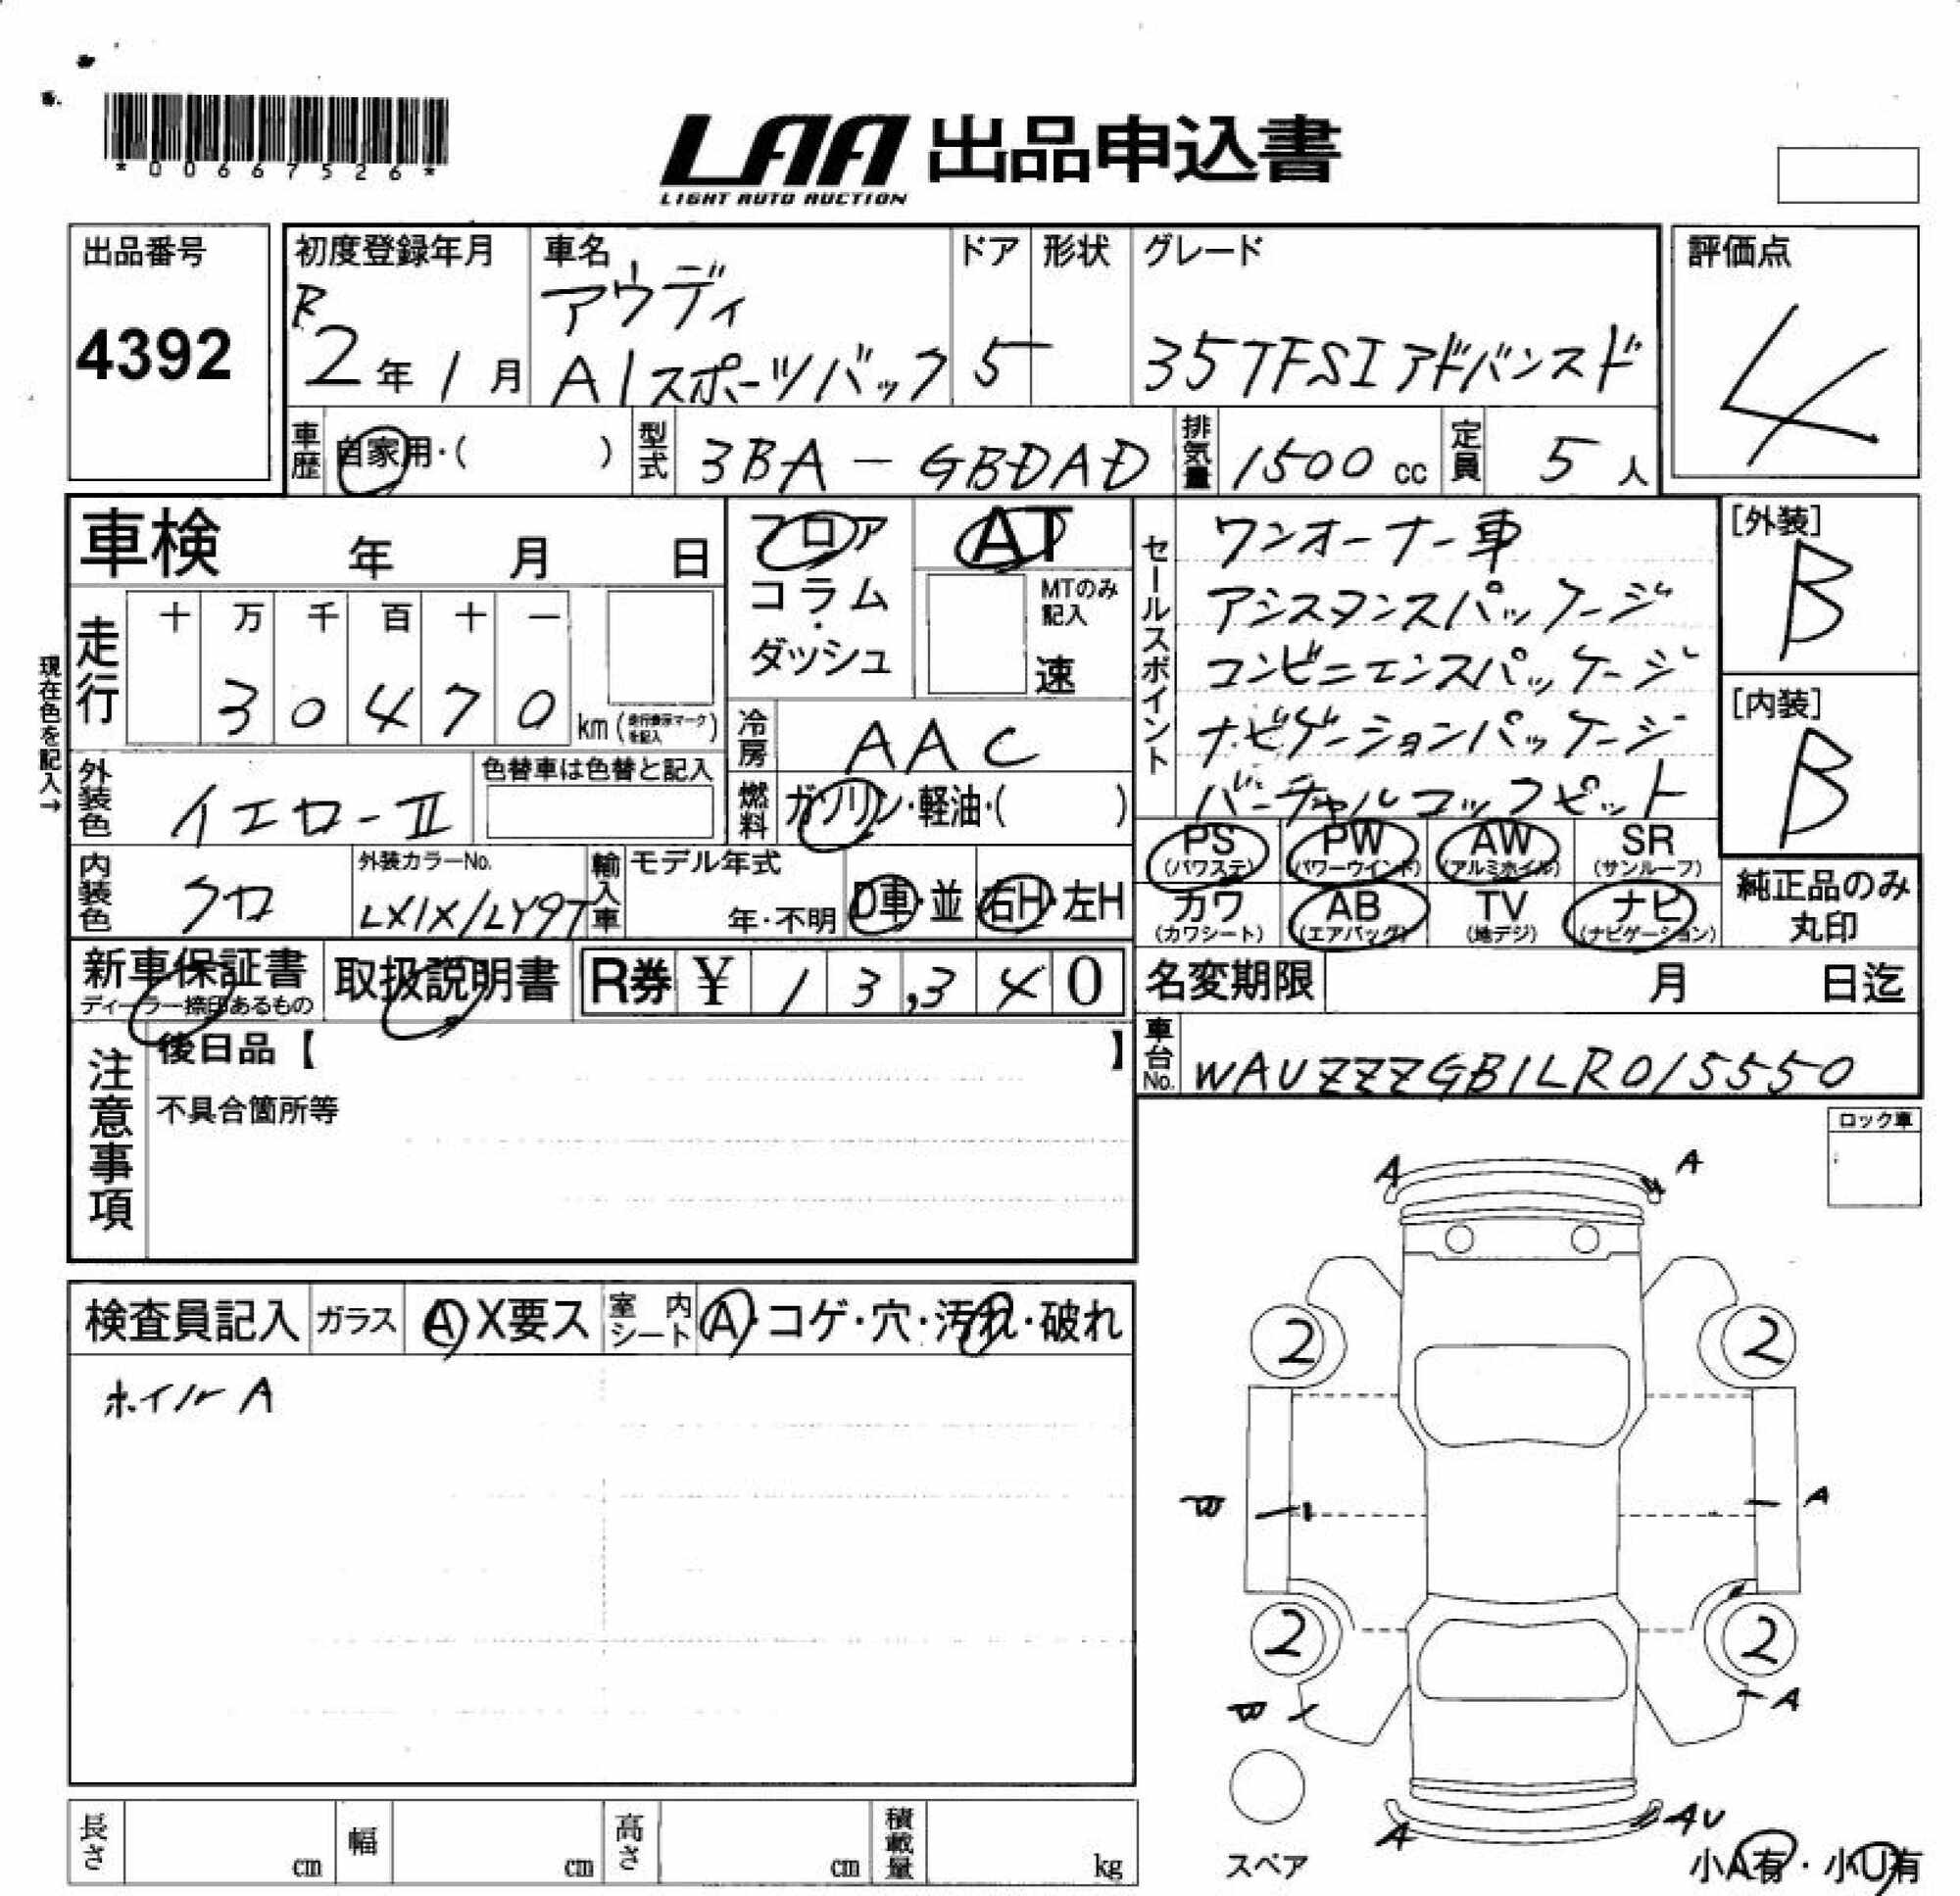 *00667526*
LAA 出品申込書
LIGHT AUTO AUCTION
出品番号
4392
初度登録年月
R
2年1月
車名
アウディ
A1スポーツバック
ドア
5
形状
グレード
35TFSIアドバンスド
評価点
4
車歴
自家用・( )
型式
3BA-GBDAD
排気量
1500cc
定員
5人
車検 年 月 日
フロア
コラム
・
ダッシュ
AT
MTのみ記入
速
セールスポイント
ワンオーナー車
アシスタンスパッケージ
コンビニエンスパッケージ
ナビゲーションパッケージ
バーチャルコックピット
[外装]
B
[内装]
B
現在色を記入→
走行
十 万 千 百 十 一
3 0 4 7 0
km (走行表示マークを記入)
冷房
AAC
外装色
イエローⅡ
色替車は色替と記入
燃料
ガソリン・軽油・( )
PS (パワステ)
PW (パワーウインド)
AW (アルミホイル)
SR (サンルーフ)
カワ (カワシート)
AB (エアバッグ)
TV (地デジ)
ナビ (ナビゲーション)
純正品のみ
丸印
内装色
クロ
外装カラーNo.
LX1X/LY9T
輸入車
モデル年式
年・不明
D車・並
右H・左H
新車保証書
ディーラー捺印あるもの
取扱説明書
R券 ¥ 13,340
名変期限 月 日迄
車台No.
WAUZZZGB1LR015550
注意事項
後日品【 】
不具合箇所等
ロック車
検査員記入
ガラス
A X要ス
室内シート
A・コゲ・穴・汚れ・破れ
ホイルA
A
A
2
2
B
A
2
2
B
A
A
AU
スペア
小A有・小U有
長さ cm
幅 cm
高さ cm
積載量 kg